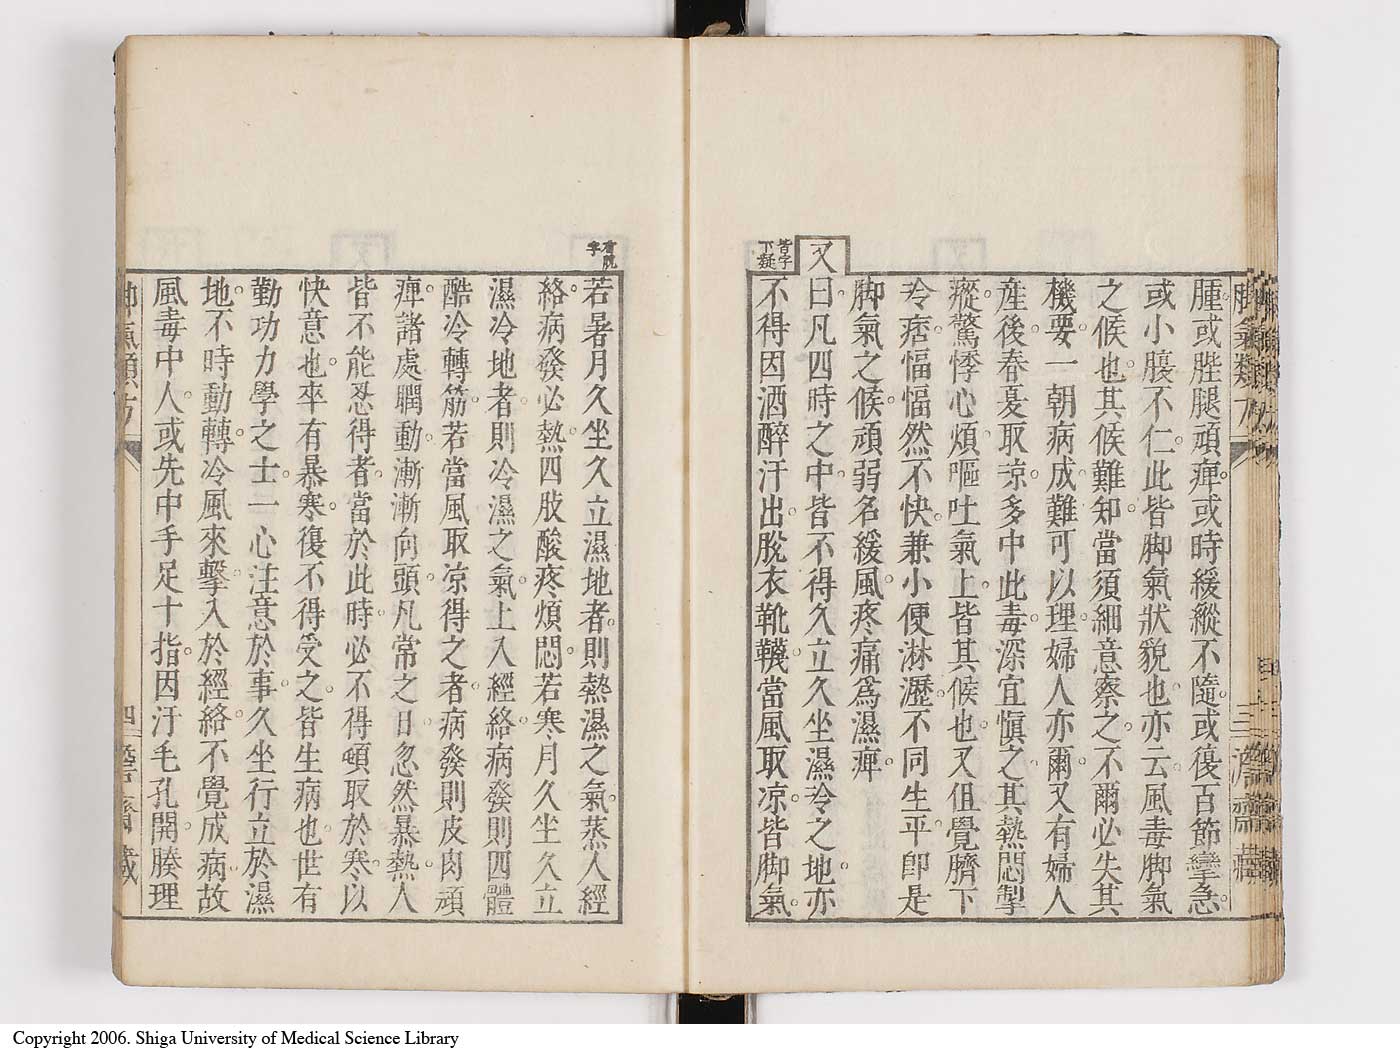 腫或脞腿頑痺或時緩縱不隨或復百節攣急
或小腹不仁此皆脚氣狀貌也亦云風毒脚氣
之候也其候難知當須細意察之不爾必失其
機要一朝病成難可以理婦人亦爾又有婦人
產後春夏取凉多中此毒深宜慎之其熱悶掣
瘲驚悸心煩嘔吐氣上皆其候也又但覺臍下
冷痞愊愊然不快兼小便淋瀝不同生平卽是
脚氣之候頑弱名緩風疼痛爲濕痺
又
曰凡四時之中皆不得久立久坐濕冷之地亦
皆字
下疑
不得因酒醉汗出脫衣靴韈當風取凉皆脚氣
脚氣類方
三
若暑月久坐久立濕地者則熱濕之氣蒸人經
絡病發必熱四肢酸疼煩悶若寒月久坐久立
濕冷地者則冷濕之氣上入經絡病發則四體
酷冷轉筋若當風取凉得之者病發則皮肉頑
痺諸處瞤動漸漸向頭凡常之日忽然暴熱人
皆不能忍得者當於此時必不得頓取於寒以
快意也卒有暴寒復不得受之皆生病也世有
勤功力學之士一心注意於事久坐行立於濕
地不時動轉冷風來擊入於經絡不覺成病故
風毒中人或先中手足十指因汗毛孔開腠理
脚氣類方
四